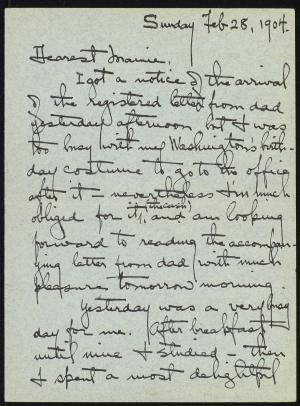 Sunday Feb. 28, 1904.
Dearest Mamie,
I got a notice of the arrival
of the registered letter from dad
yesterday afternoon but I was
too busy with my Washington's birth-
day costume to go to the office
after it – nevertheless I'm much
obliged for it, (the cash) and am looking
forward to reading the accompan-
ying letter from dad with much
pleasure tomorrow morning.
Yesterday was a very busy
day for me. After breakfast
until nine I studied – then
I spent a most delightful